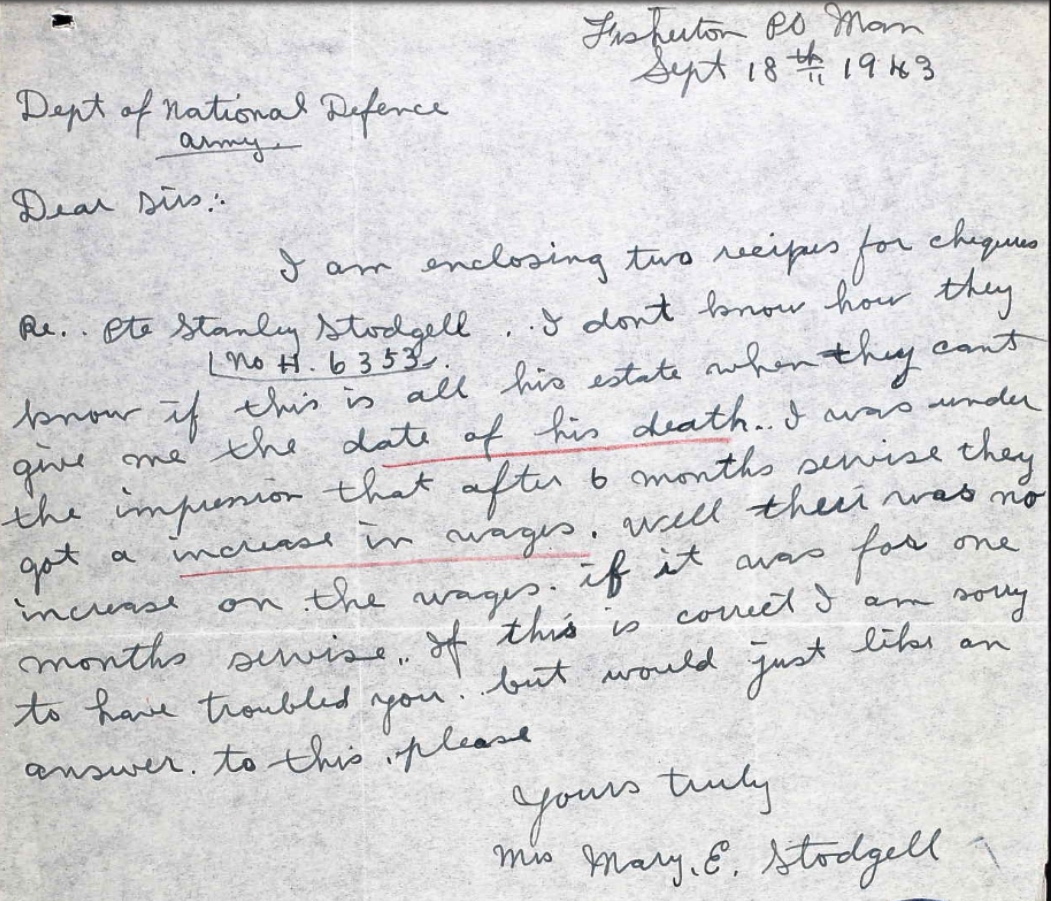 Fisherton PO Man
Sept 18th 1943
Dept of National Defence
army.
Dear Sirs:.
I am enclosing two recipes for cheques
Re.. Pte Stanley Stodgell .. I dont know how they
No H. 6353.
know if this is all his estate when they cant
give me the date of his death.. I was under
the impression that after 6 months servise they
got a increase in wages. Well their was no
increase on the wages. if it was for one
months servise.. If this is correct I am sorry
to have troubled you.. but would just like an
answer. to this, please
Yours truly
Mrs Mary. E. Stodgell